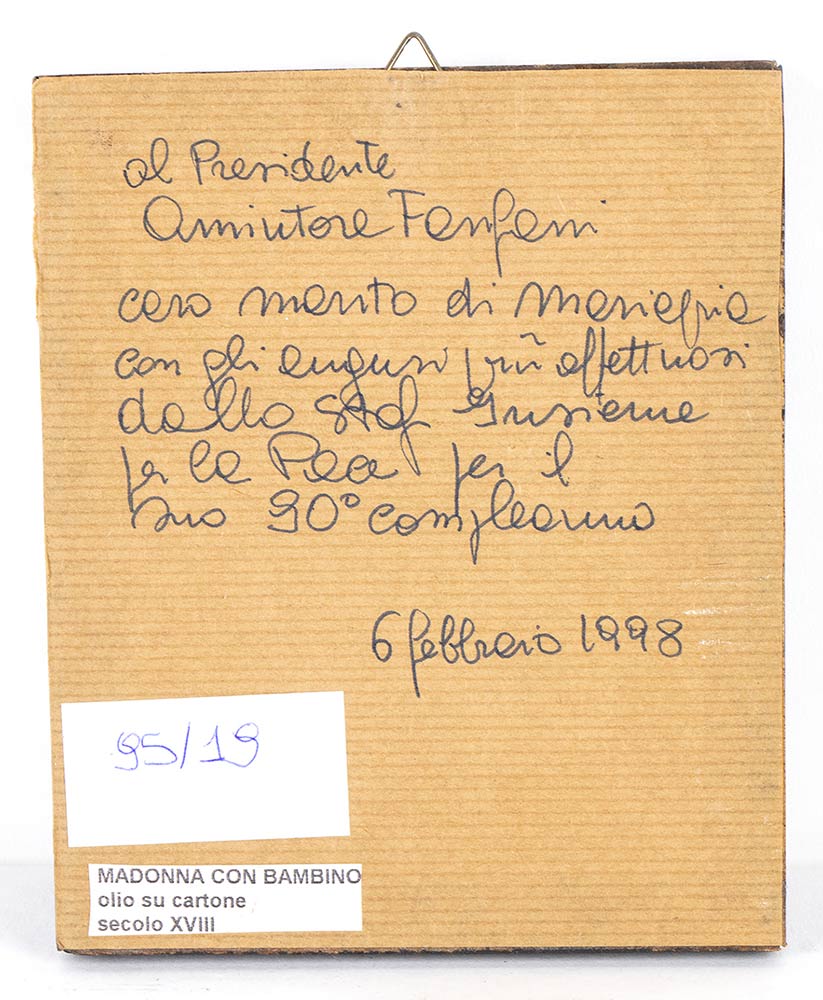 al Presidente
Amintore Fanfani
caro marito di Mariapia
con gli auguri più affettuosi
dallo Staf Insieme
per la Pace per il
suo 90° compleanno
6 febbraio 1998
95/19
MADONNA CON BAMBINO
olio su cartone
secolo XVIII